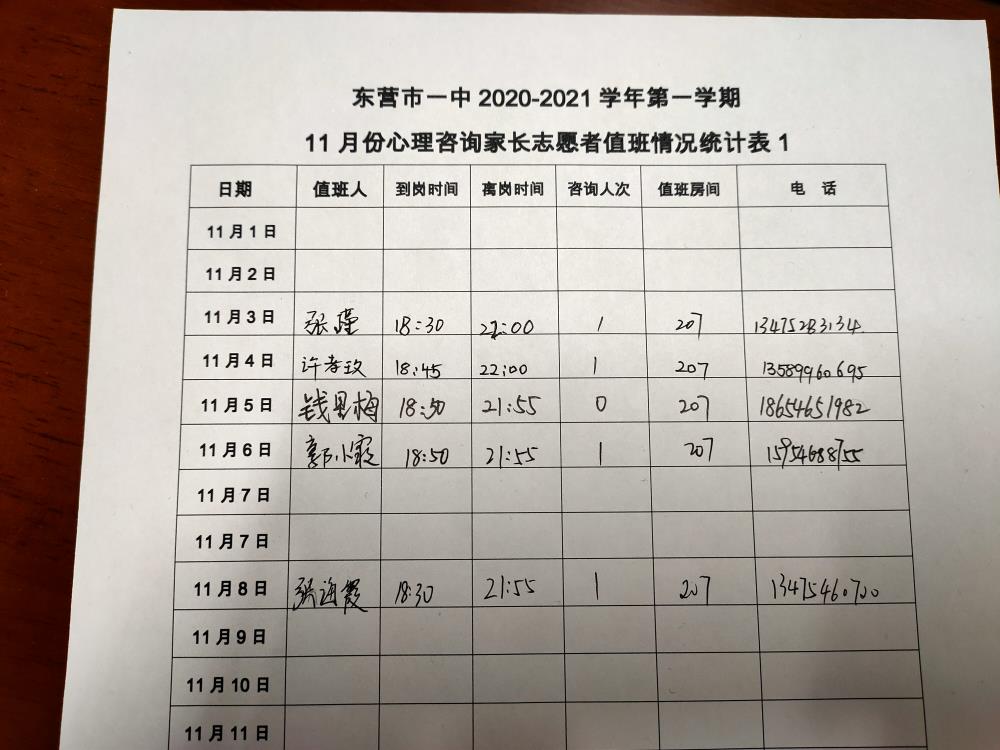 东营市一中 2020-2021 学年第一学期
11 月份心理咨询家长志愿者值班情况统计表 1
日期 值班人 到岗时间 离岗时间 咨询人次 值班房间 电 话
11 月 1 日
11 月 2 日
11 月 3 日 张瑾 18:30 22:00 1 207 13475283134
11 月 4 日 许孝玫 18:45 22:00 1 207 13589960695
11 月 5 日 钱恩梅 18:50 21:55 0 207 18654651982
11 月 6 日 郭小霞 18:50 21:55 1 207 15954688755
11 月 7 日
11 月 7 日
11 月 8 日 张海霞 18:30 21:55 1 207 13475460700
11 月 9 日
11 月 10 日
11 月 11 日